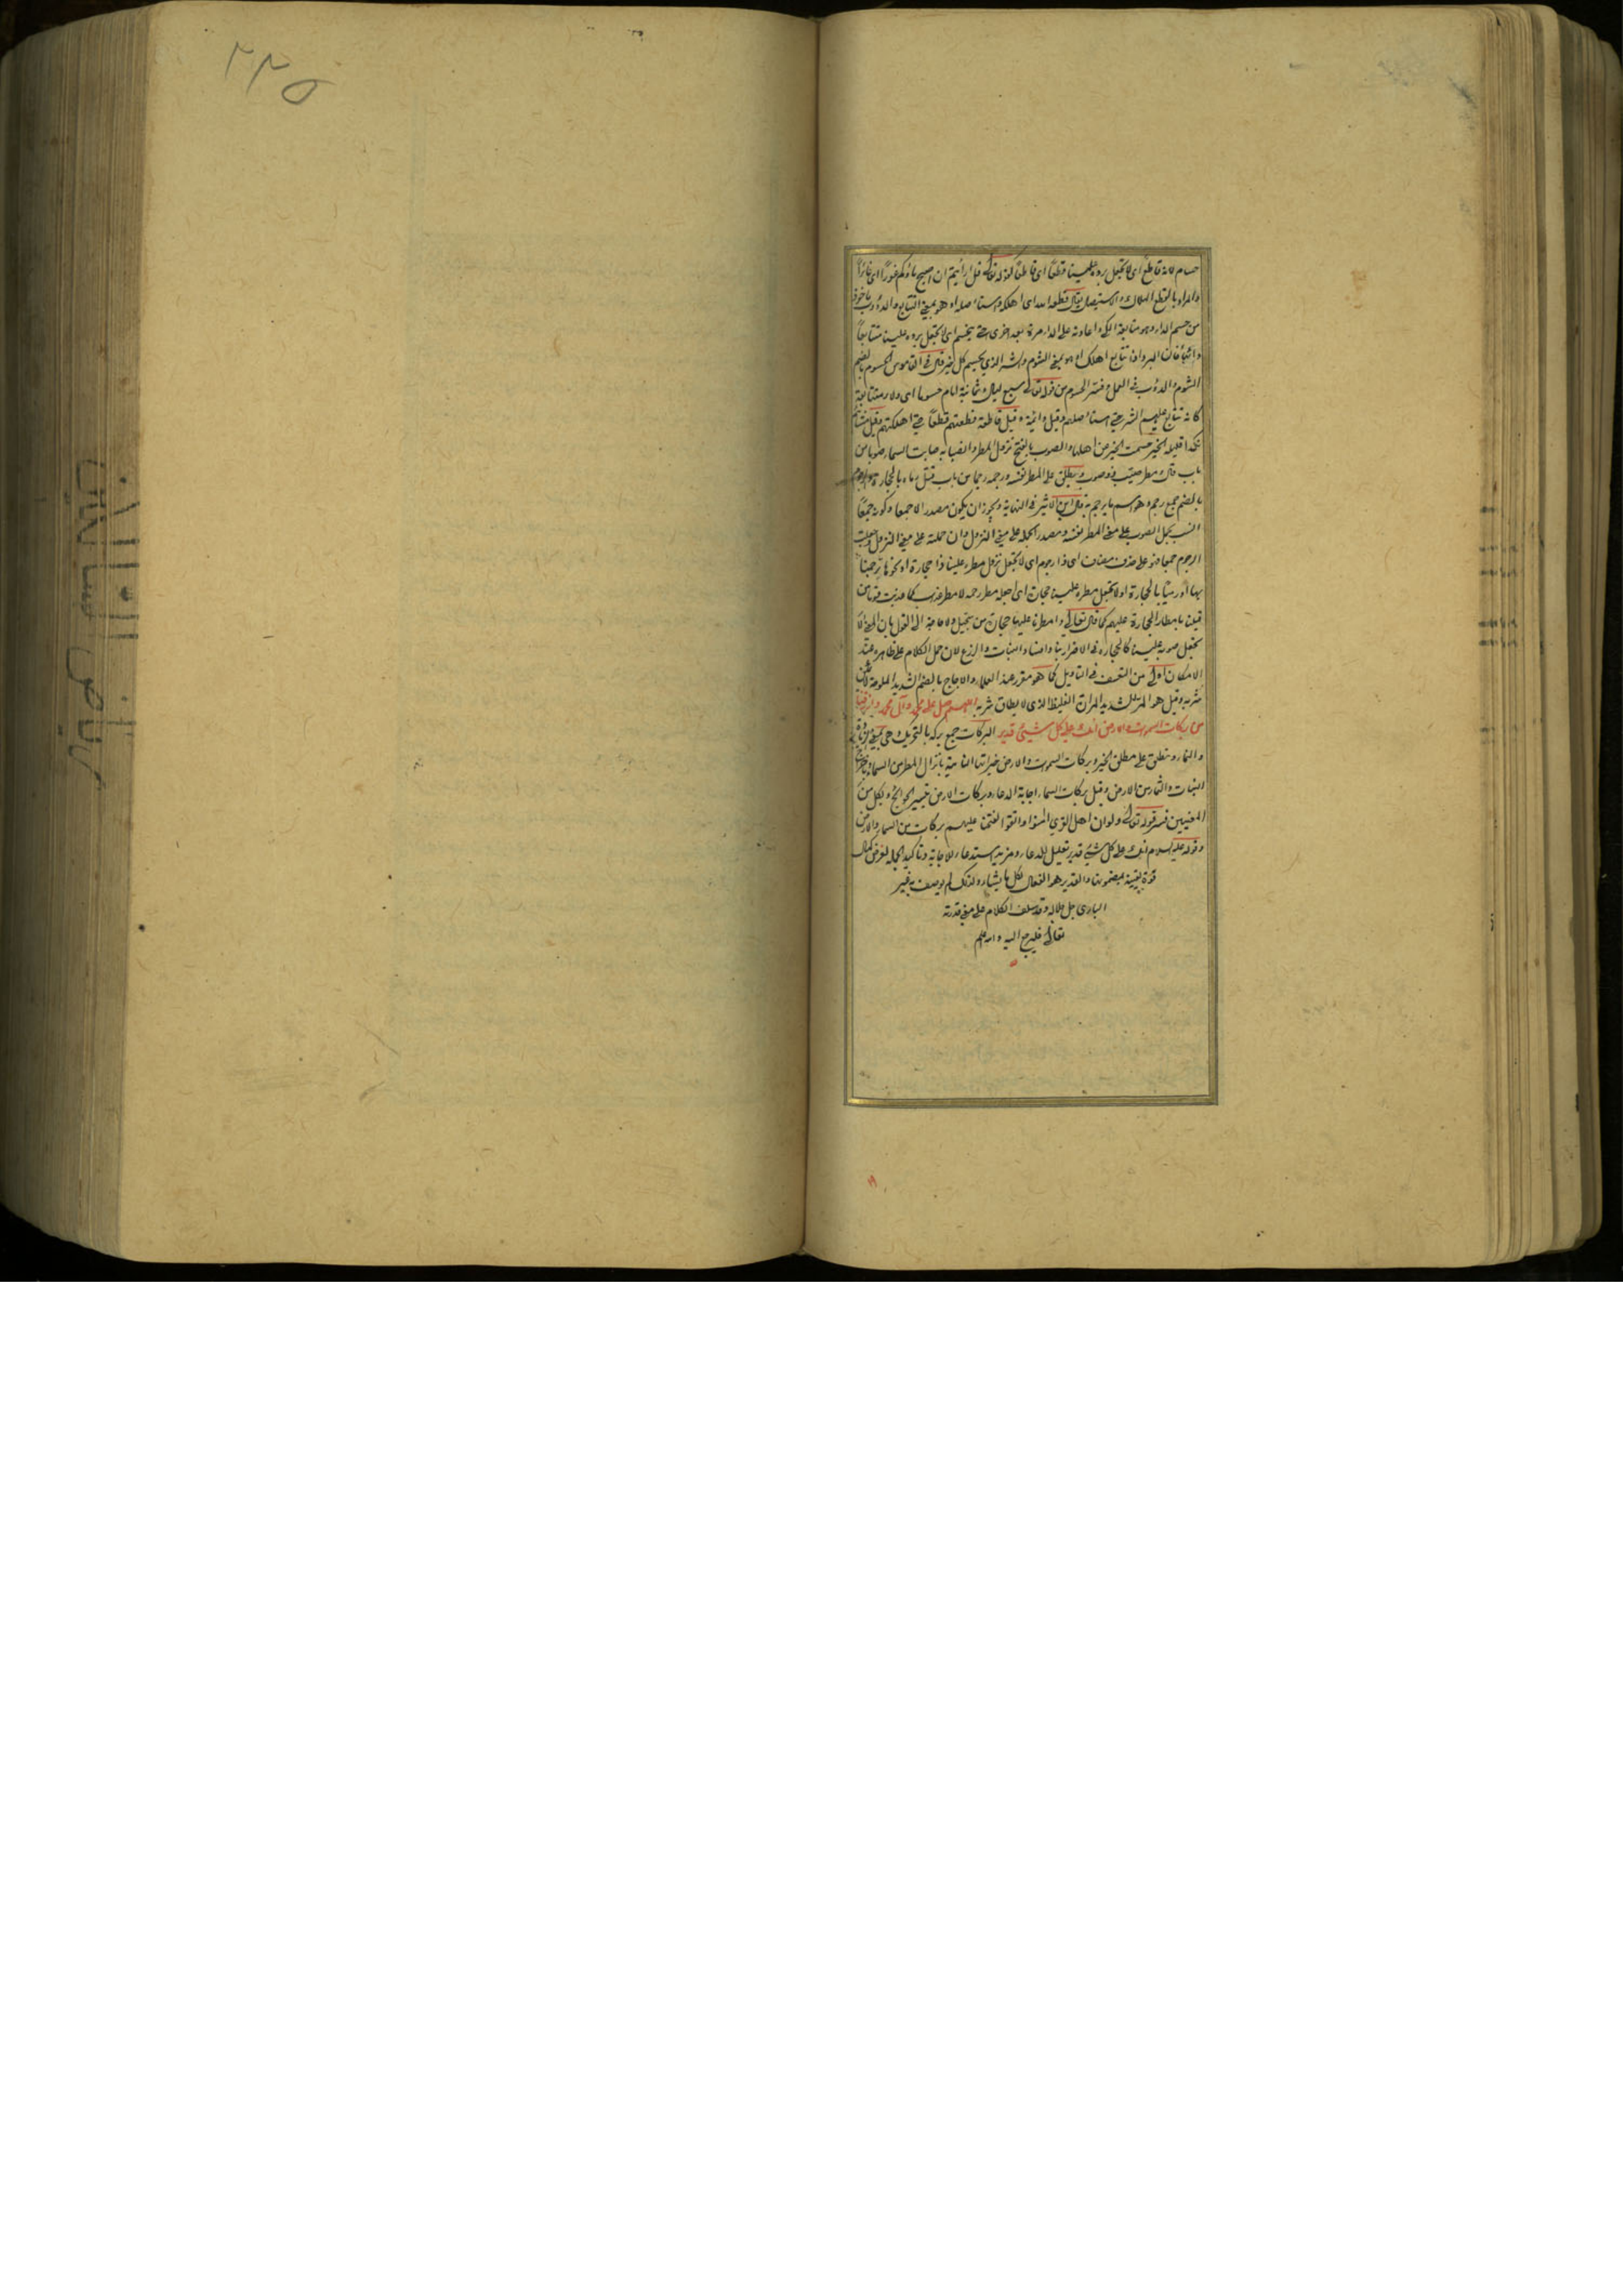 حسام لانه قاطع اى لا تجعل برده علينا قطعًا اى قاطعًا كقوله تعالى قل ارأيتم ان اصبح ماؤكم غورًا اى غائرًا
والمراد بالقطع الهلاك والاستيصال يقال قطعه الله اى اهلكه واستاصله او هو بمعنى التتابع والدؤوب
من حسم الداء وهو متابعة الكى واعادته على الداء مرة بعد اخرى حتى ينحسم اى لا تجعل برده علينا متتابعًا
دائبًا فان البرد اذا تتابع اهلك او هو بمعنى الشوم والشر الذى يحسم كل خير قال فى القاموس الحسوم بالضم
الشوم والدؤب فى العمل وفسر الحسوم من قوله تعالى سبع ليال وثمانية ايام حسوما اى ولاء متتابعة
كانه تتابع عليهم الشر حتى استاصلهم وقيل دائمة وقيل قاطعة قطعتهم قطعًا حتى اهلكتهم وقيل مشائم
نكدا قليلة الخير حسمت الخير من اهلها والصوب بالفتح نزول المطر وانصبابه صابت السماء صوبا من
باب قال ومطر صيب وصوب ويطلق على المطر نفسه ورجمه رجما من باب قتل رماه بالحجارة والرجوم
بالضم جمع رجم وهو اسم ما يرجم به قال ابن الاثير فى النهاية ويجوز ان يكون مصدرا لا جمعا وكونه جمعًا
انسب بحمل الصوب على معنى المطر نفسه ومصدرا بحمله على معنى النزول وان حملته على معنى النزول وجعلت
الرجوم جمعا فهو على حذف مضاف اى ذا رجوم اى لا تجعل نزول مطره علينا ذا حجارة او نحوها ترجمنا
بها او رميًا بالحجارة او لا تجعل مطره علينا حجارة اى اجعله مطر رحمة لا مطر عذاب كما عذبت قوما من
قبلنا بامطار الحجارة عليهم كما قال تعالى وامطرنا عليها حجارة من سجيل ولا حاجة الى القول بان المعنى لا
تجعل صوبه علينا كالحجارة فى الاضرار بنا وافساد النبات والزرع لان حمل الكلام على ظاهره عند
الامكان اولى من التعسف فى التاويل كما هو مقرر عند العلماء والاجاج بالضم الشديد الملوحة لا يمكن
شربه وقيل هو المر الشديد المرارة الغليظ الذى لا يطاق شربه اللهم صل على محمد وآل محمد وارزقنا
من بركات السموات والارض انك على كل شىء قدير البركات جمع بركة بالتحريك وهى بمعنى الزيادة
والنماء وتطلق على مطلق الخير وبركات السموات والارض خيراتها النامية بانزال المطر من السماء واخراج
النبات والثمار من الارض وقيل بركات السماء اجابة الدعاء وبركات الارض تيسير الحوائج وبكل من
المعنيين فسر قوله تعالى ولو ان اهل القرى امنوا واتقوا لفتحنا عليهم بركات من السماء والارض
وقوله عليه السلام انك على كل شىء قدير تعليل للدعاء ومزيد استدعاء للاجابة وتاكيد الجملة لغرض كمال
قوة يقينه بمضمونها والقدير هو الفعال لكل ما يشاء ولذلك لم يوصف به غير
البارى جل جلاله وقد سلف الكلام على معنى قدرته
تعالى فليرجع اليه والله اعلم
٢٢٥
رياض السالكين